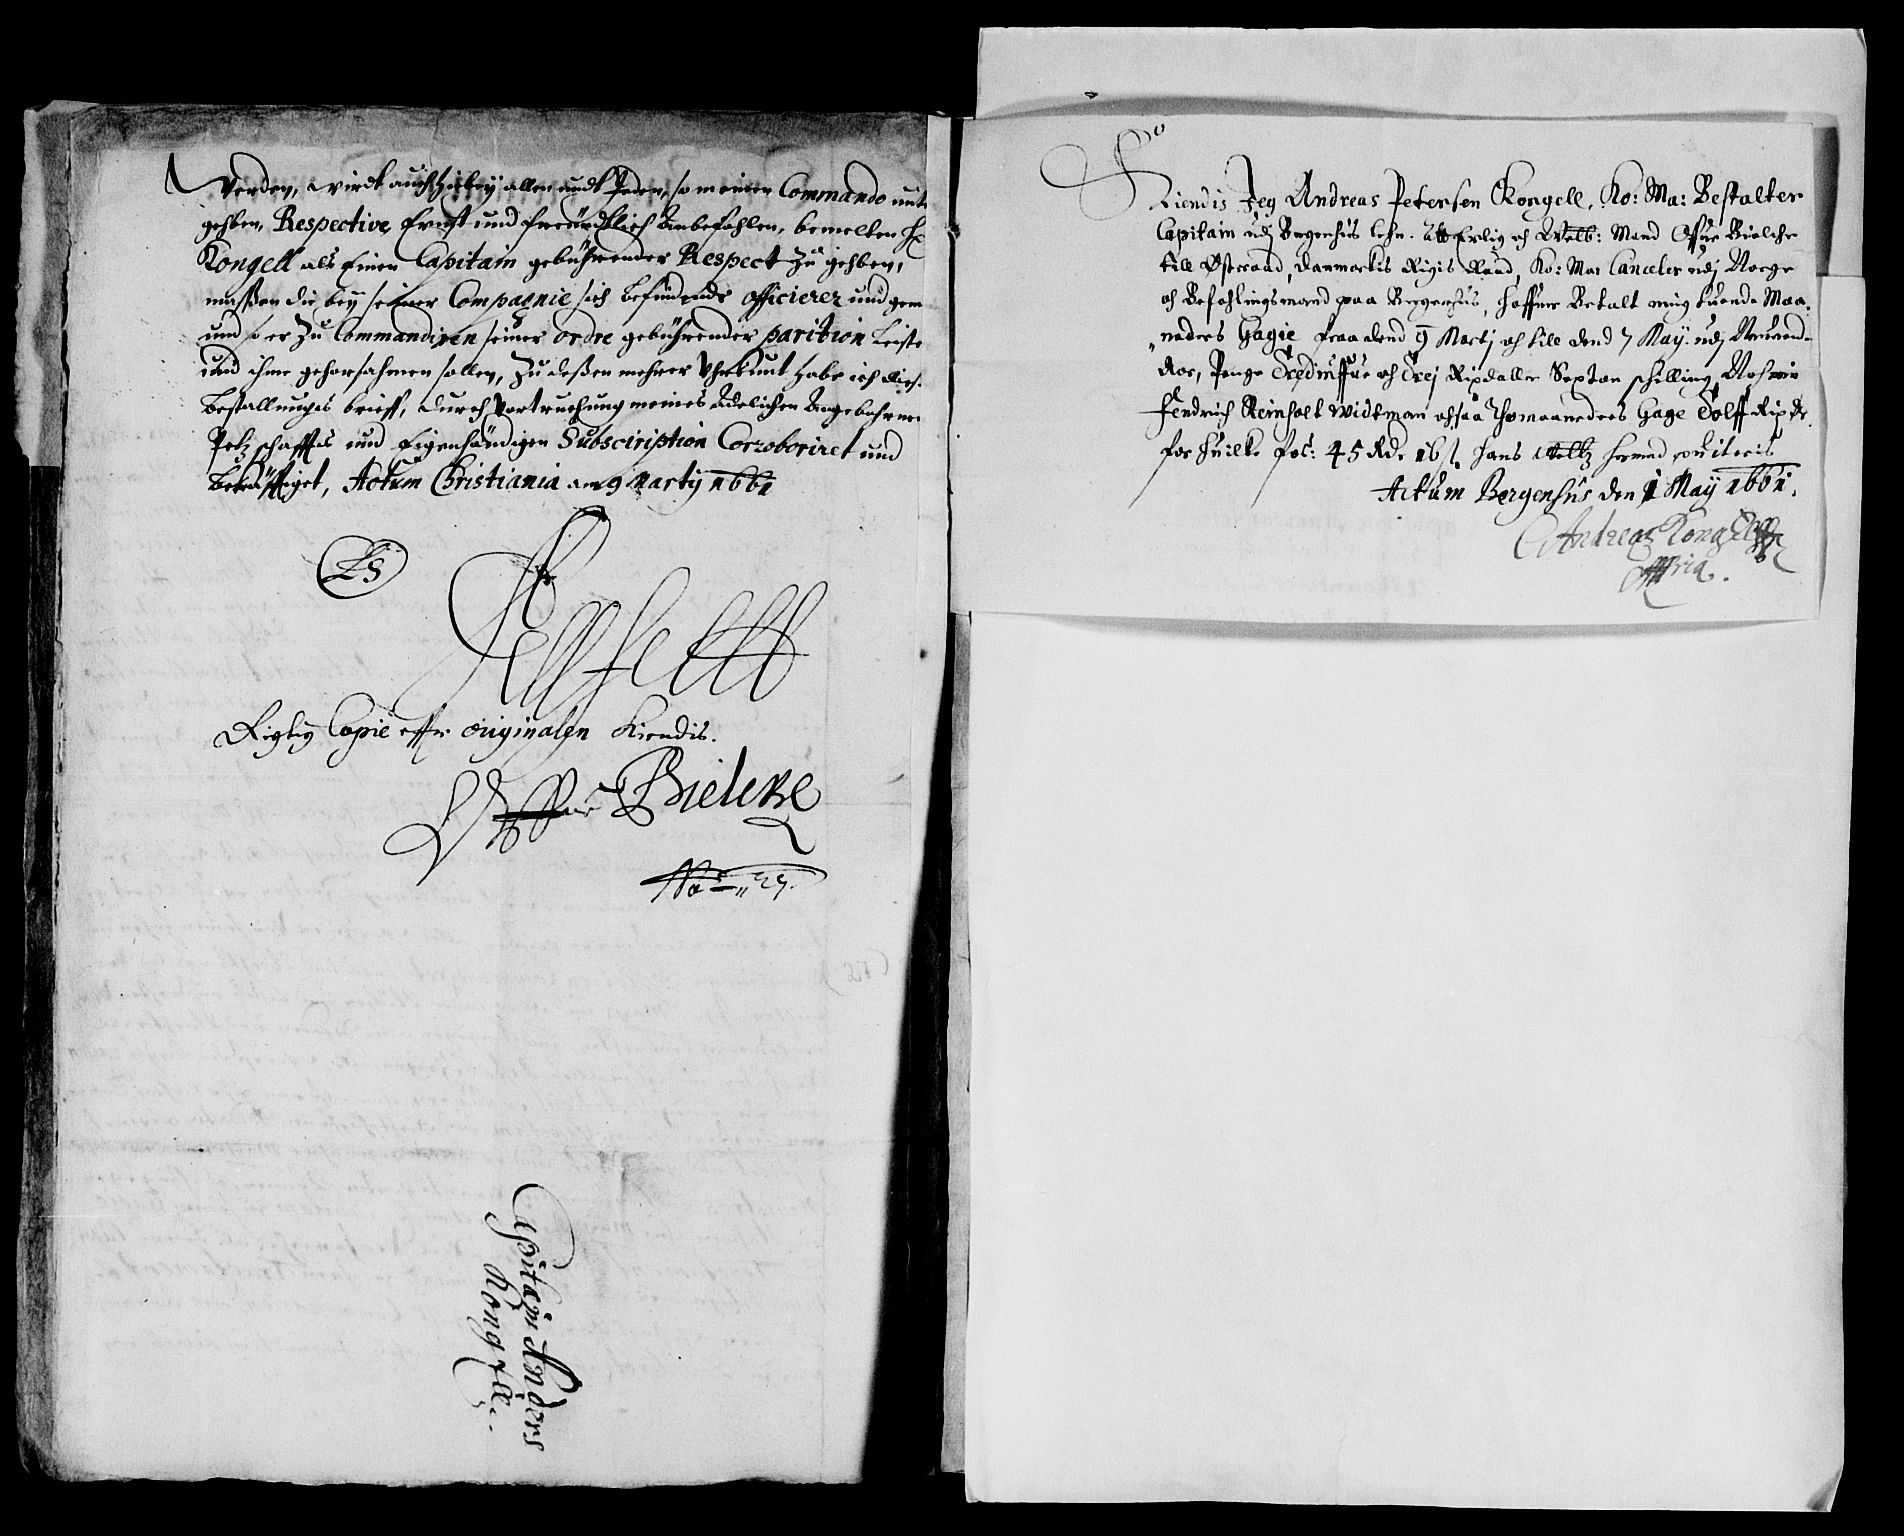 Werden, wirdt auch hiebey allen undt Jeden, so meinen Commando unt
gehben, Respective Ernst und freündtlich Anbefohlen, bemelten H:
Kongell als Einen Capitain gebührender Respect zu gehben,
maßen die bey seiner Compagnie sich befindende officierer und gem
und so er zu Commandiren seiner ordre gebührender parition Leiste
und ihme gehorsahmen sollen, Zu deßen mehrer Uhrkunt habe ich dies.
Bestallunges brieff, durch Vortruchung meines Adelichen Angebohrne
Petzschafftes und Eigenhändigen Subsciription Corroboriret und
bekräfftiget, Actum Christiania am 9 Martij 1661
LS
Rigtig Copie effter originalen Kiendis.
Offue Bielcke
No: 27.
Capitain Anders
Kongell.
No
Kiendis Jeg Andreas Petersen Kongell, Ko: Ma: Bestalter
Capitain udj Bergenhus Lehn. Att Erlig och Welb: Mand Offue Bielche
till Østeraad, Danmarkis Rigis Raad, Ko: Ma: Canceler udj Norge
och Befahlingsmand paa Bergenhus, haffuer Betalt mig tuende Maa-
neders Gagie fraa dend 9 Martj och till dend 7 May. udj Nerwerend-
Aar, Penge Tredifffue och Trej Rixdaller Sexten schilling, Noch min
Fendrich Reinholt Widtman ochsaa Thomaaneders Gage Tolff Rix dr.
for huilke for: 45 Rdr 16 s hans Welb: hermed quiteris
Actum Bergenhus den 1 May 1661.
Andreas Kongell
Mria.